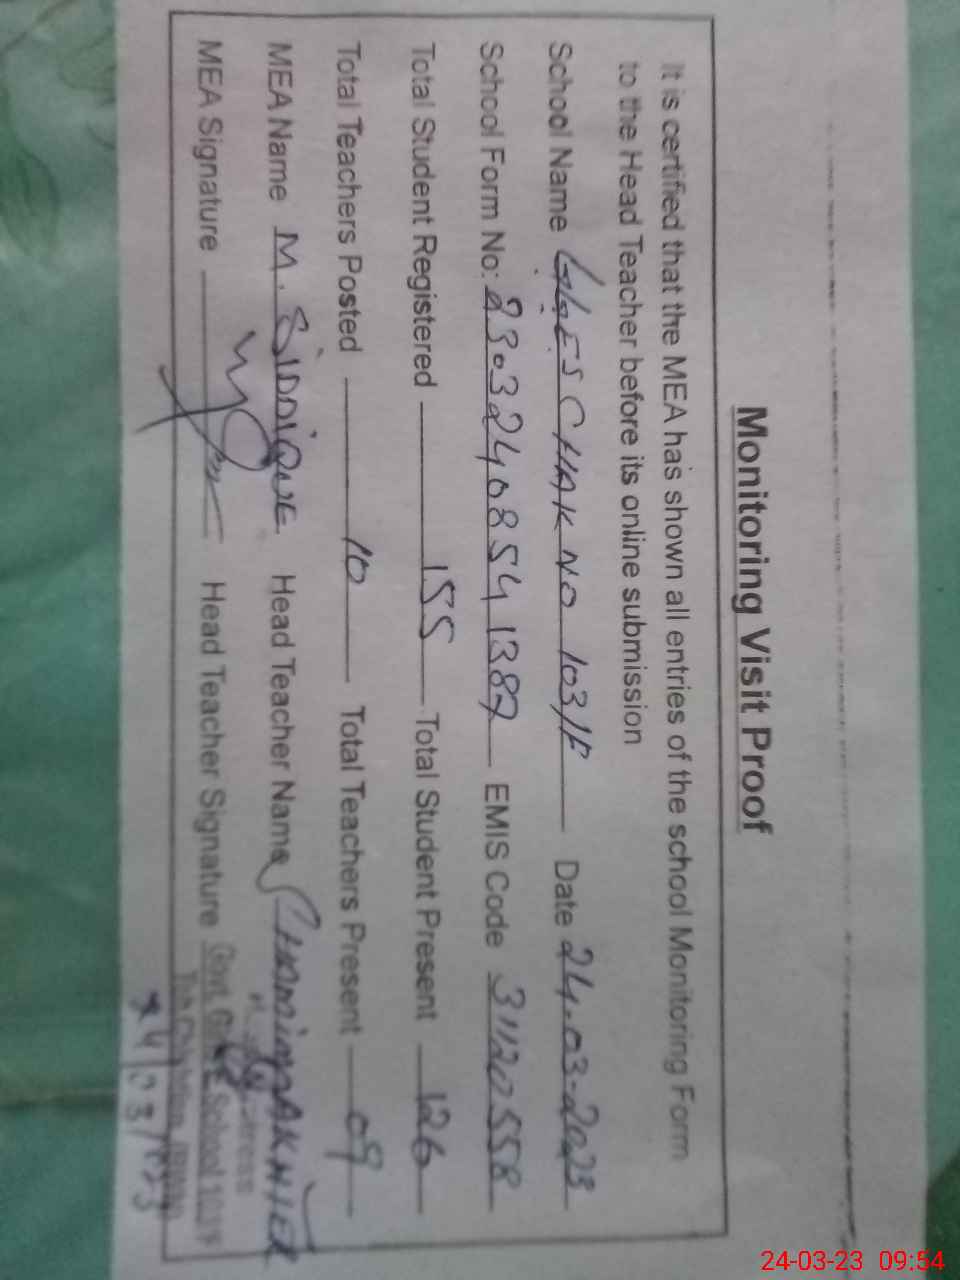 Monitoring Visit Proof
It is certified that the MEA has shown all entries of the school Monitoring Form
to the Head Teacher before its online submission
School Name GGES CHAK NO 103/F Date 24.03-2023
School Form No: 2303240854 1387 EMIS Code 31120558
Total Student Registered 155 Total Student Present 126
Total Teachers Posted 10 Total Teachers Present 09
MEA Name M. SIDDIQUE Head Teacher Name AKHTER
MEA Signature Head Teacher Signature
Govt. School 103/F
24/03/23
24-03-23 09:54